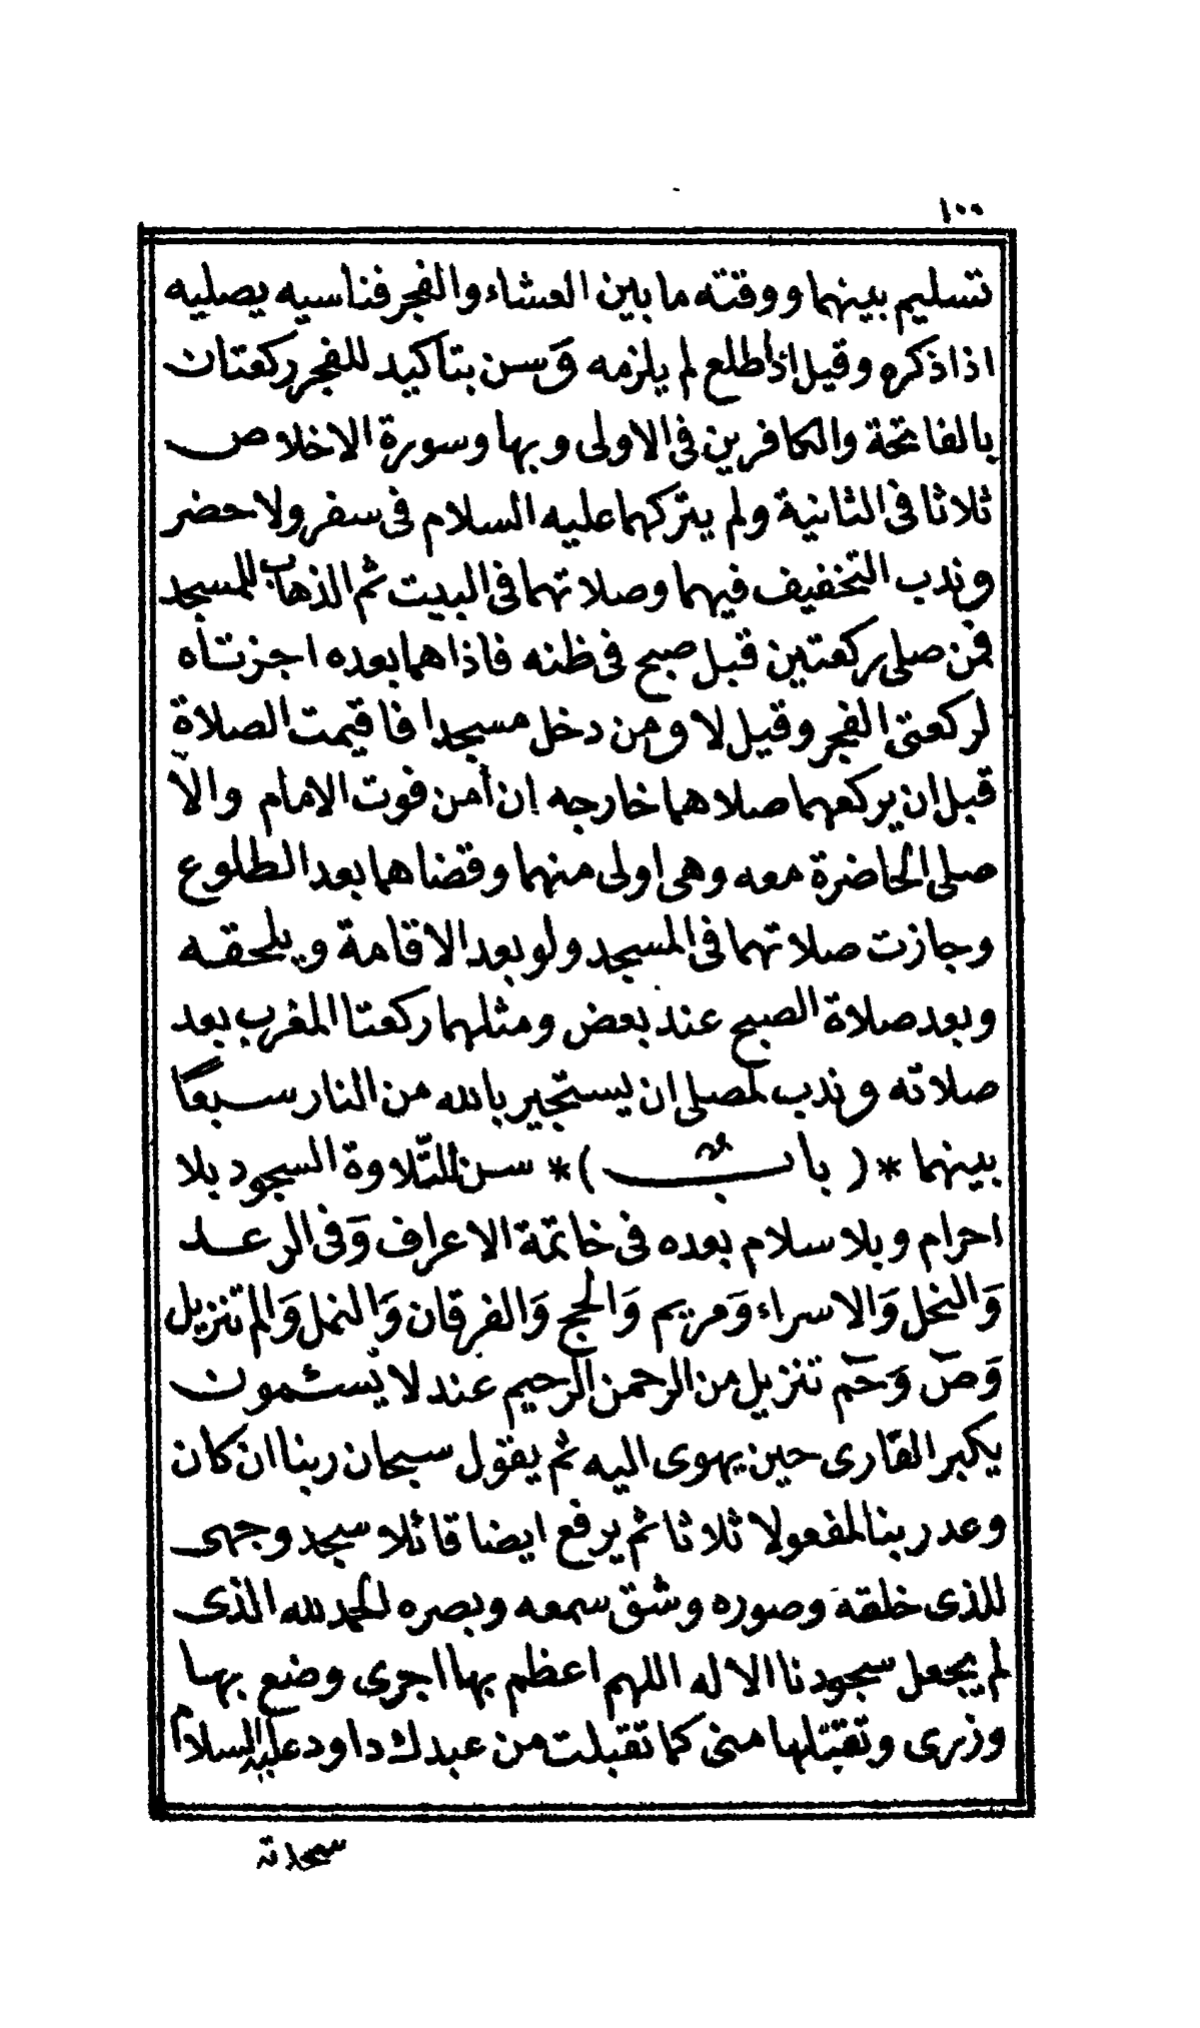 ١٠٠
تسليم بينهما ووقته ما بين العشاء والفجر فناسيه يصليه
اذا ذكره وقيل اذا طلع لم يلزمه وَسن بتأكيد للفجر ركعتان
بالفاتحة والكافرين فى الاولى وبها وسورة الاخلاص
ثلاثا فى الثانية ولم يتركهما عليه السلام فى سفر ولا حضر
وندب التخفيف فيهما وصلاتهما فى البيت ثم الذهاب للمسجد
فمن صلى ركعتين قبل صبح فى ظنه فاذا هما بعده اجزتاه
لركعتى الفجر وقيل لا ومن دخل مسجدا فاقيمت الصلاة
قبل ان يركعهما صلاهما خارجه إن أمن فوت الامام والاّ
صلى الحاضرة معه وهى اولى منهما وقضاهما بعد الطلوع
وجازت صلاتهما فى المسجد ولو بعد الاقامة ويلحقه
وبعد صلاة الصبح عند بعض ومثلهما ركعتا المغرب بعد
صلاته وندب لمصلى ان يستجير بالله من النار سبعًا
بينهما *( باب )* سن للتلاوة السجود بلا
احرام وبلا سلام بعده فى خاتمة الاعراف وَفى الرعد
وَالنحل وَالاسراء وَمريم وَالحج وَالفرقان وَالنمل وَالم تنزيل
وَص وَحم تنزيل من الرحمن الرحيم عند لا يسئمون
يكبر القارى حين يهوى اليه ثم يقول سبحان ربنا ان كان
وعد ربنا لمفعولا ثلاثا ثم يرفع ايضا قائلا سجد وجهى
للذى خلقه وصوره وشق سمعه وبصره الحمد لله الذى
لم يجعل سجودنا الا له اللهم اعظم بها اجرى وضع بها
وزرى وتقبّلها منى كما تقبلت من عبدك داود عليه السلام
سجدته